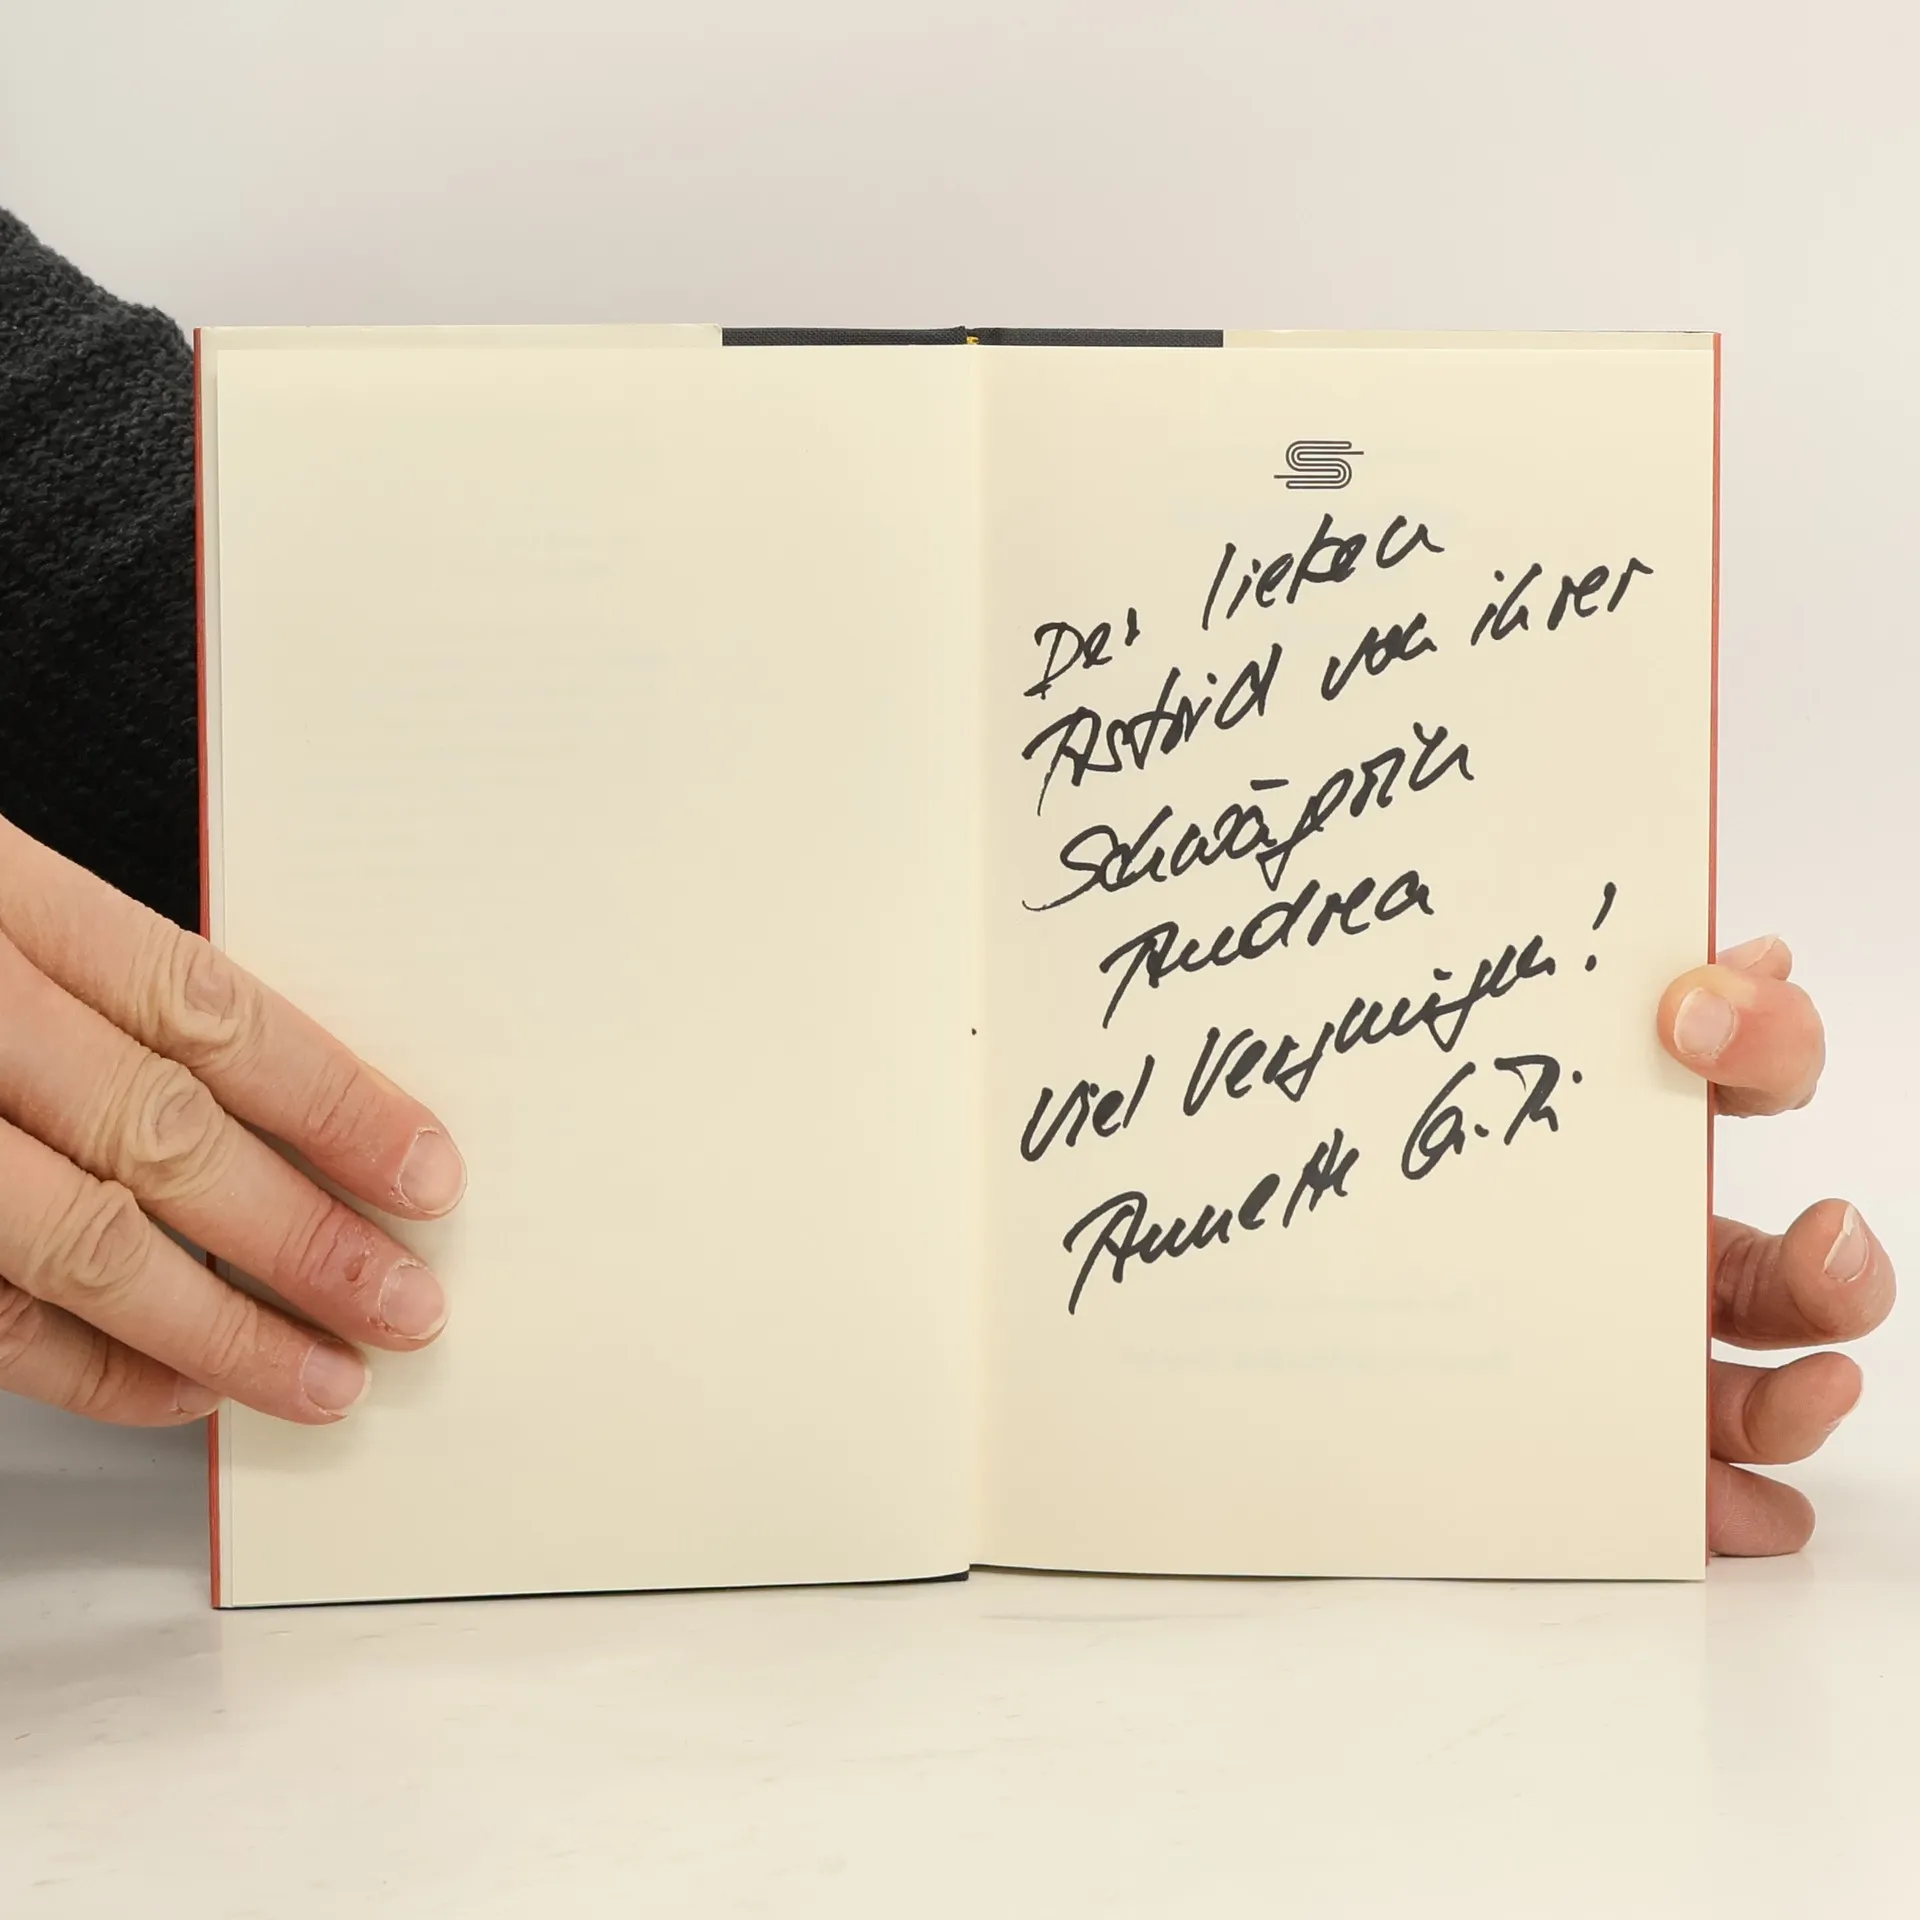 S
Der lieben
Astrid von ihrer
Schwägerin
Andrea
viel Vergnügen!
Annette